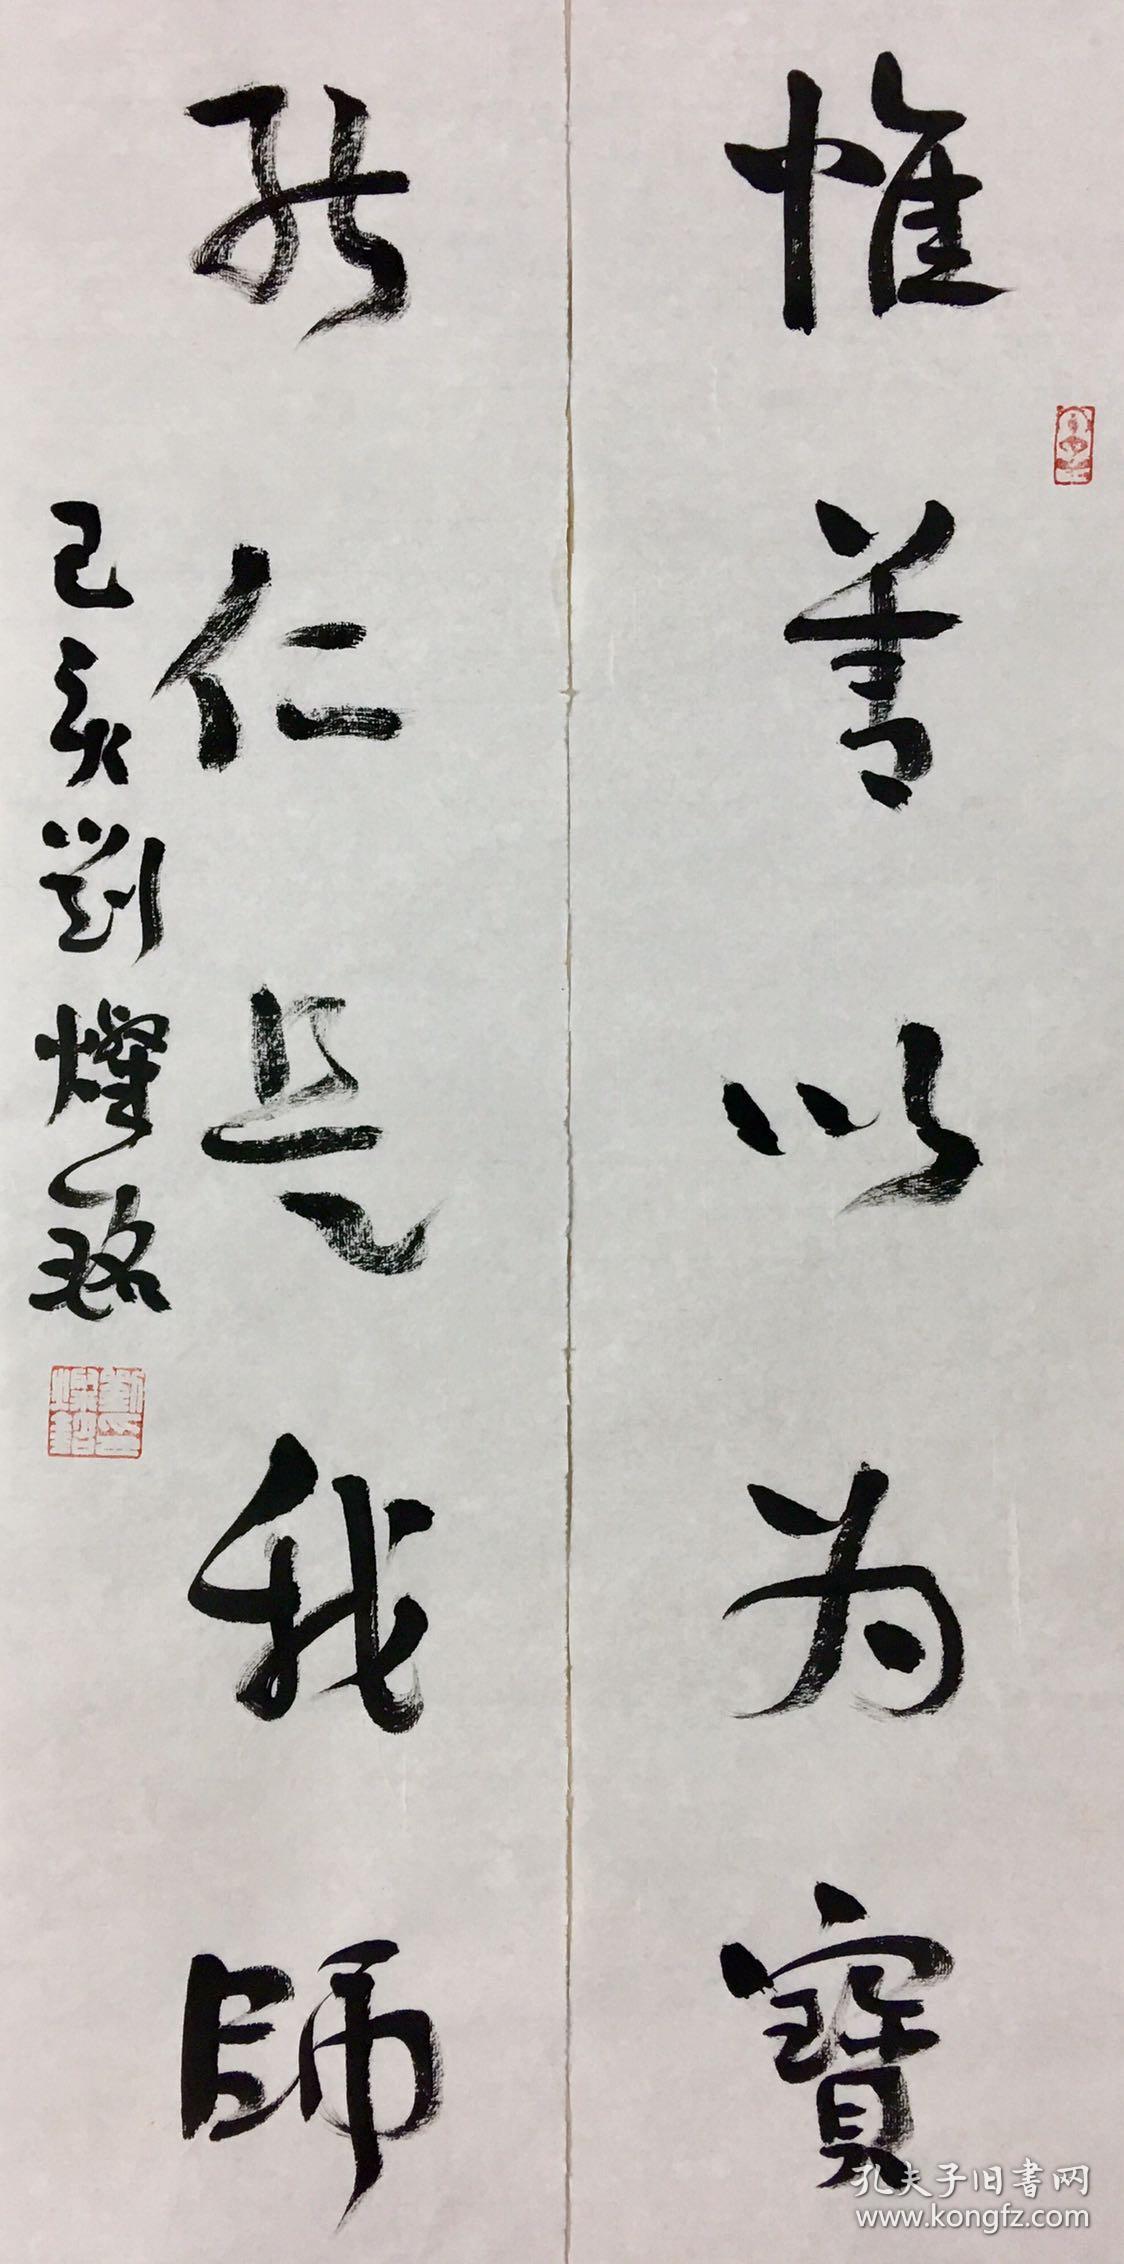 惟善以为寳
能仁是我師
己亥劉燦銘
劉燦銘印
孔夫子旧书网
www.kongfz.com